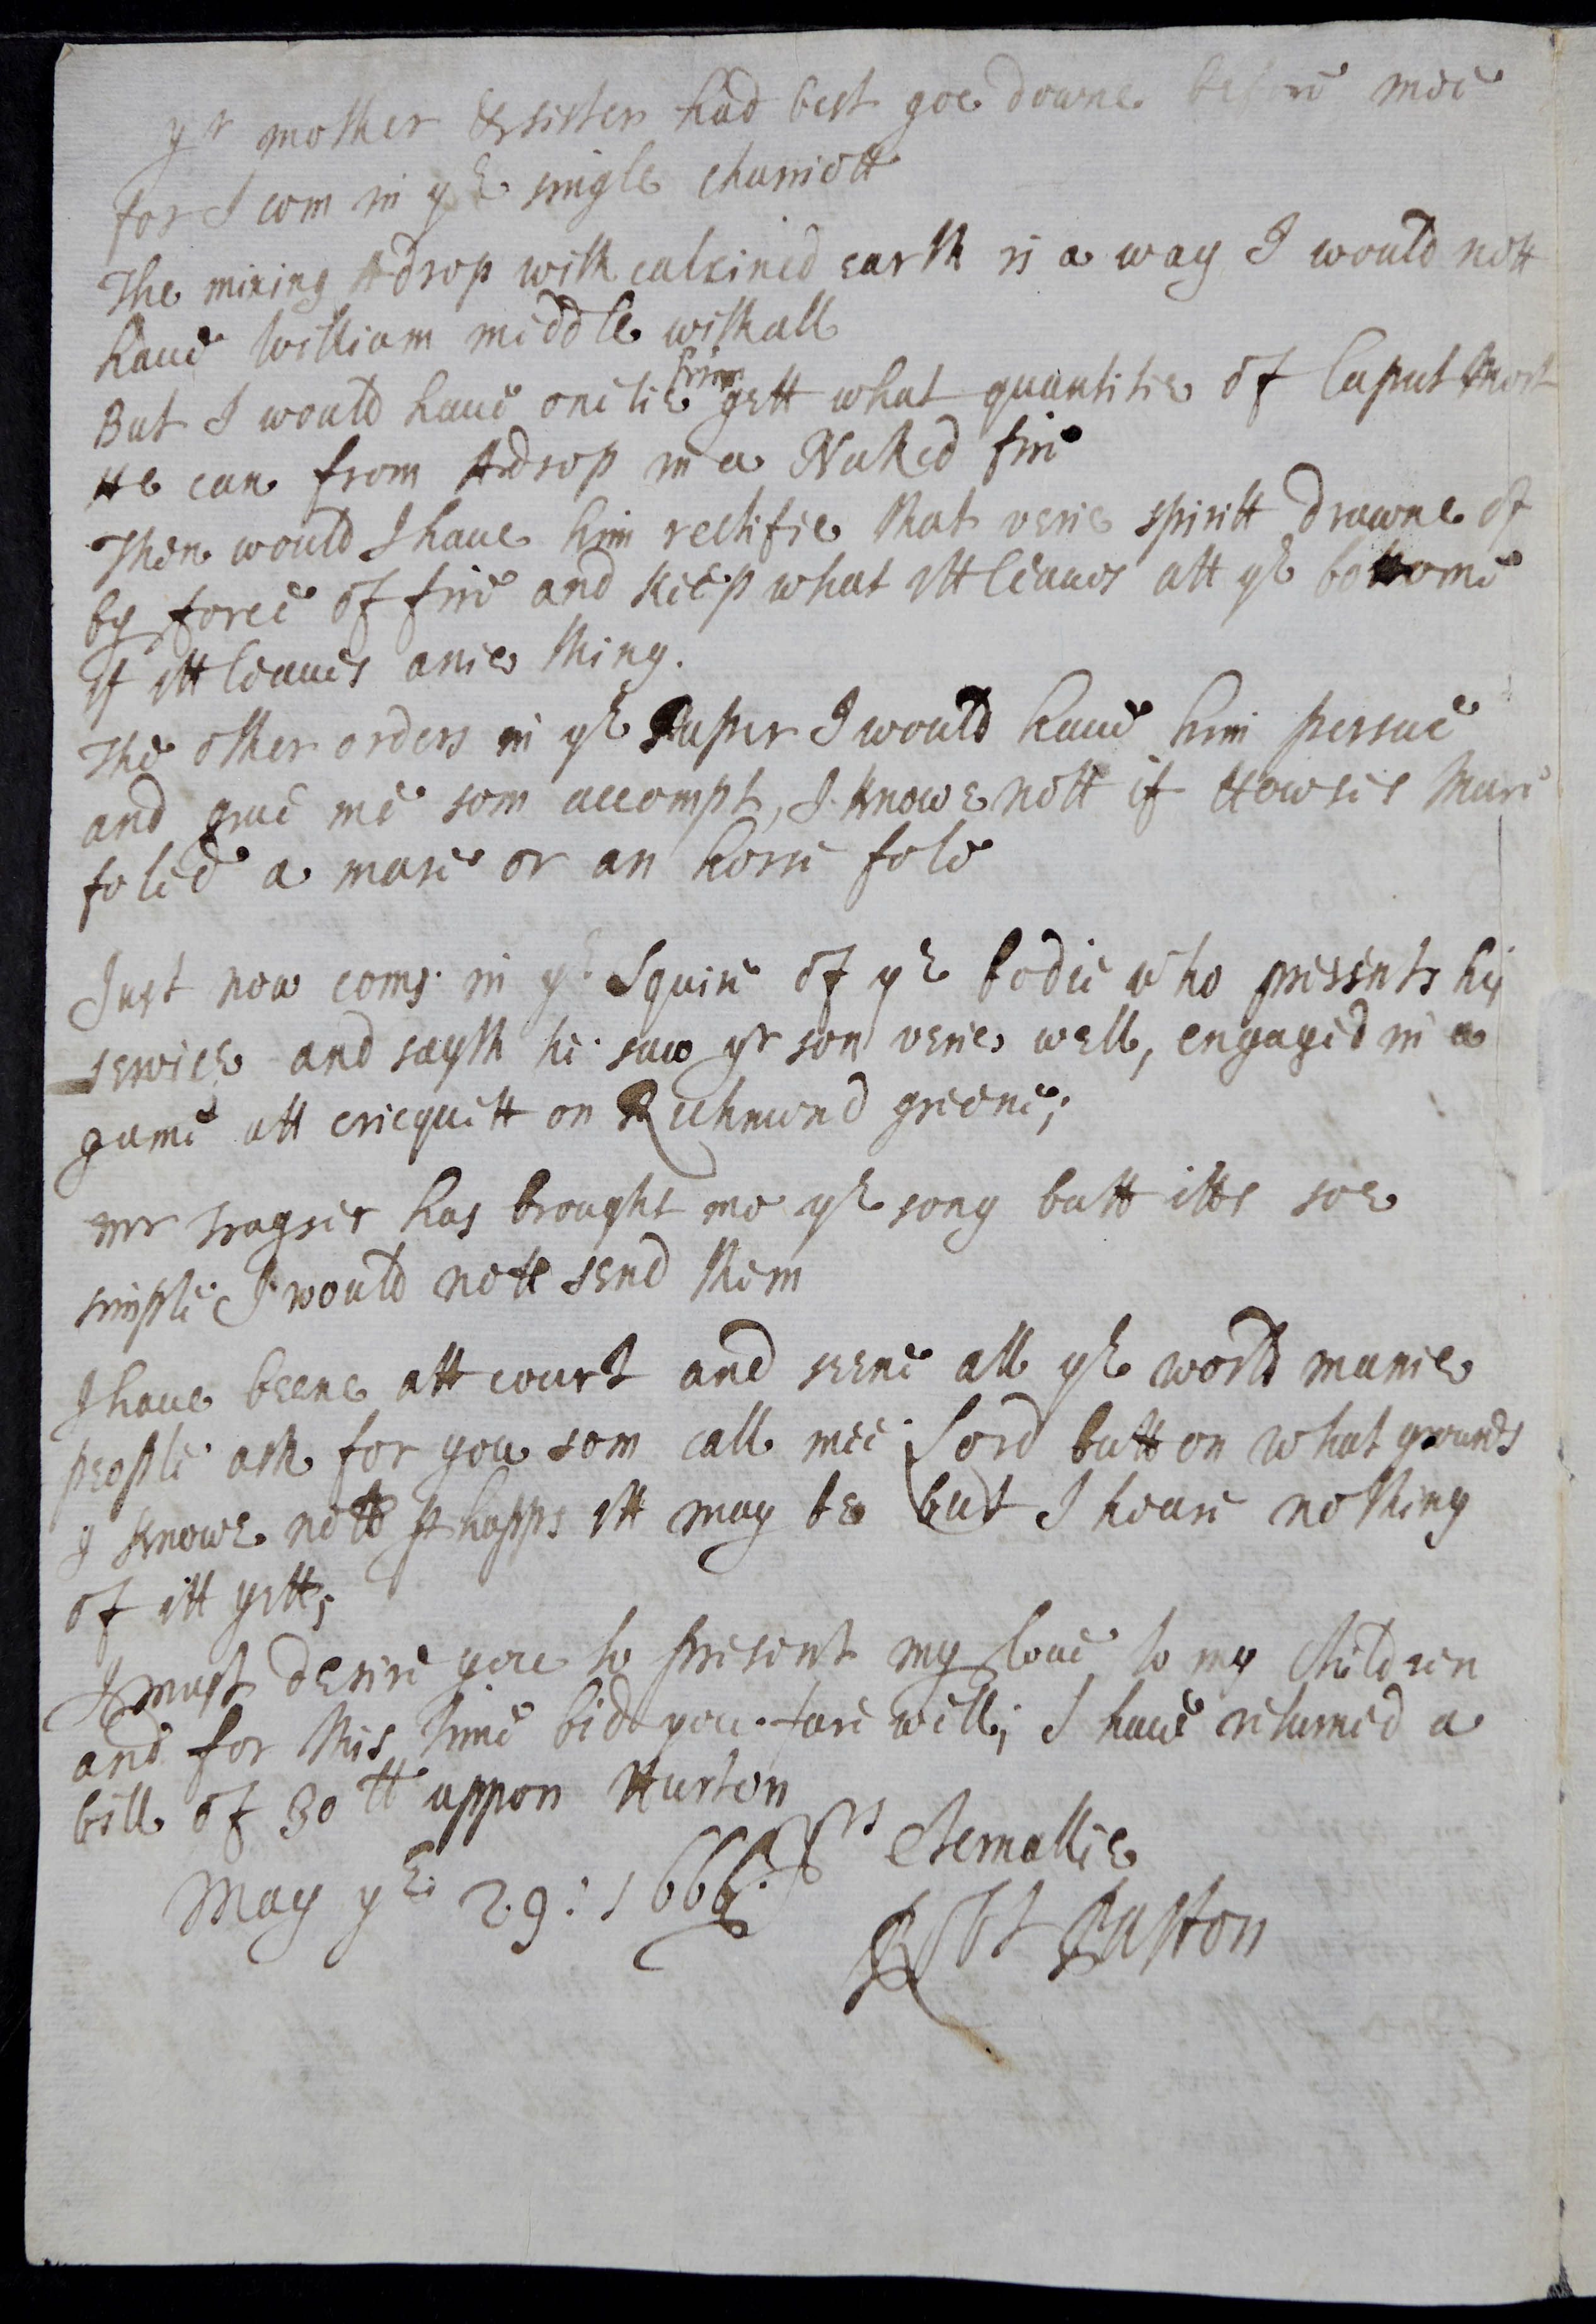 yr mother & sister had best goe downe before mee
for I com in ye single chariott
The mixing Adrop with calcined earth is a way I would nott
haue William middle withall
But I would haue onelie him gett what quantitie of Caput Mort
He can from Adrop in a Naked fire
Then would I haue him rectifie that verie spiritt drawne of
by force of fire and keep what itt leaues att ye bottome
If itt leaues anie thing.
The other orders in ye paper I would haue him persue
and giue me som accompt, I knowe nott if Howses Mare
foled a mare or an horse fole
Just now coms in ye Squire of ye bodie who presents his
seruice and sayth he saw yr son verie well, engaged in a
game att cricquett on Richmond greene;
Mr has brought me ye song butt itts soe
simple I would nott send them
I haue beene att court and seene all ye world manie
people ask for you som call mee Lord butt on what grounds
I knowe nott phapps itt may be but I heare nothing
of itt yett;
I must desire you to present my loue to my Children
and for this time bid you farewell; I haue returned a
bill of 30ll uppon Hurton
Yrs eternallie
May ye 29: 1666:
Robt Paston